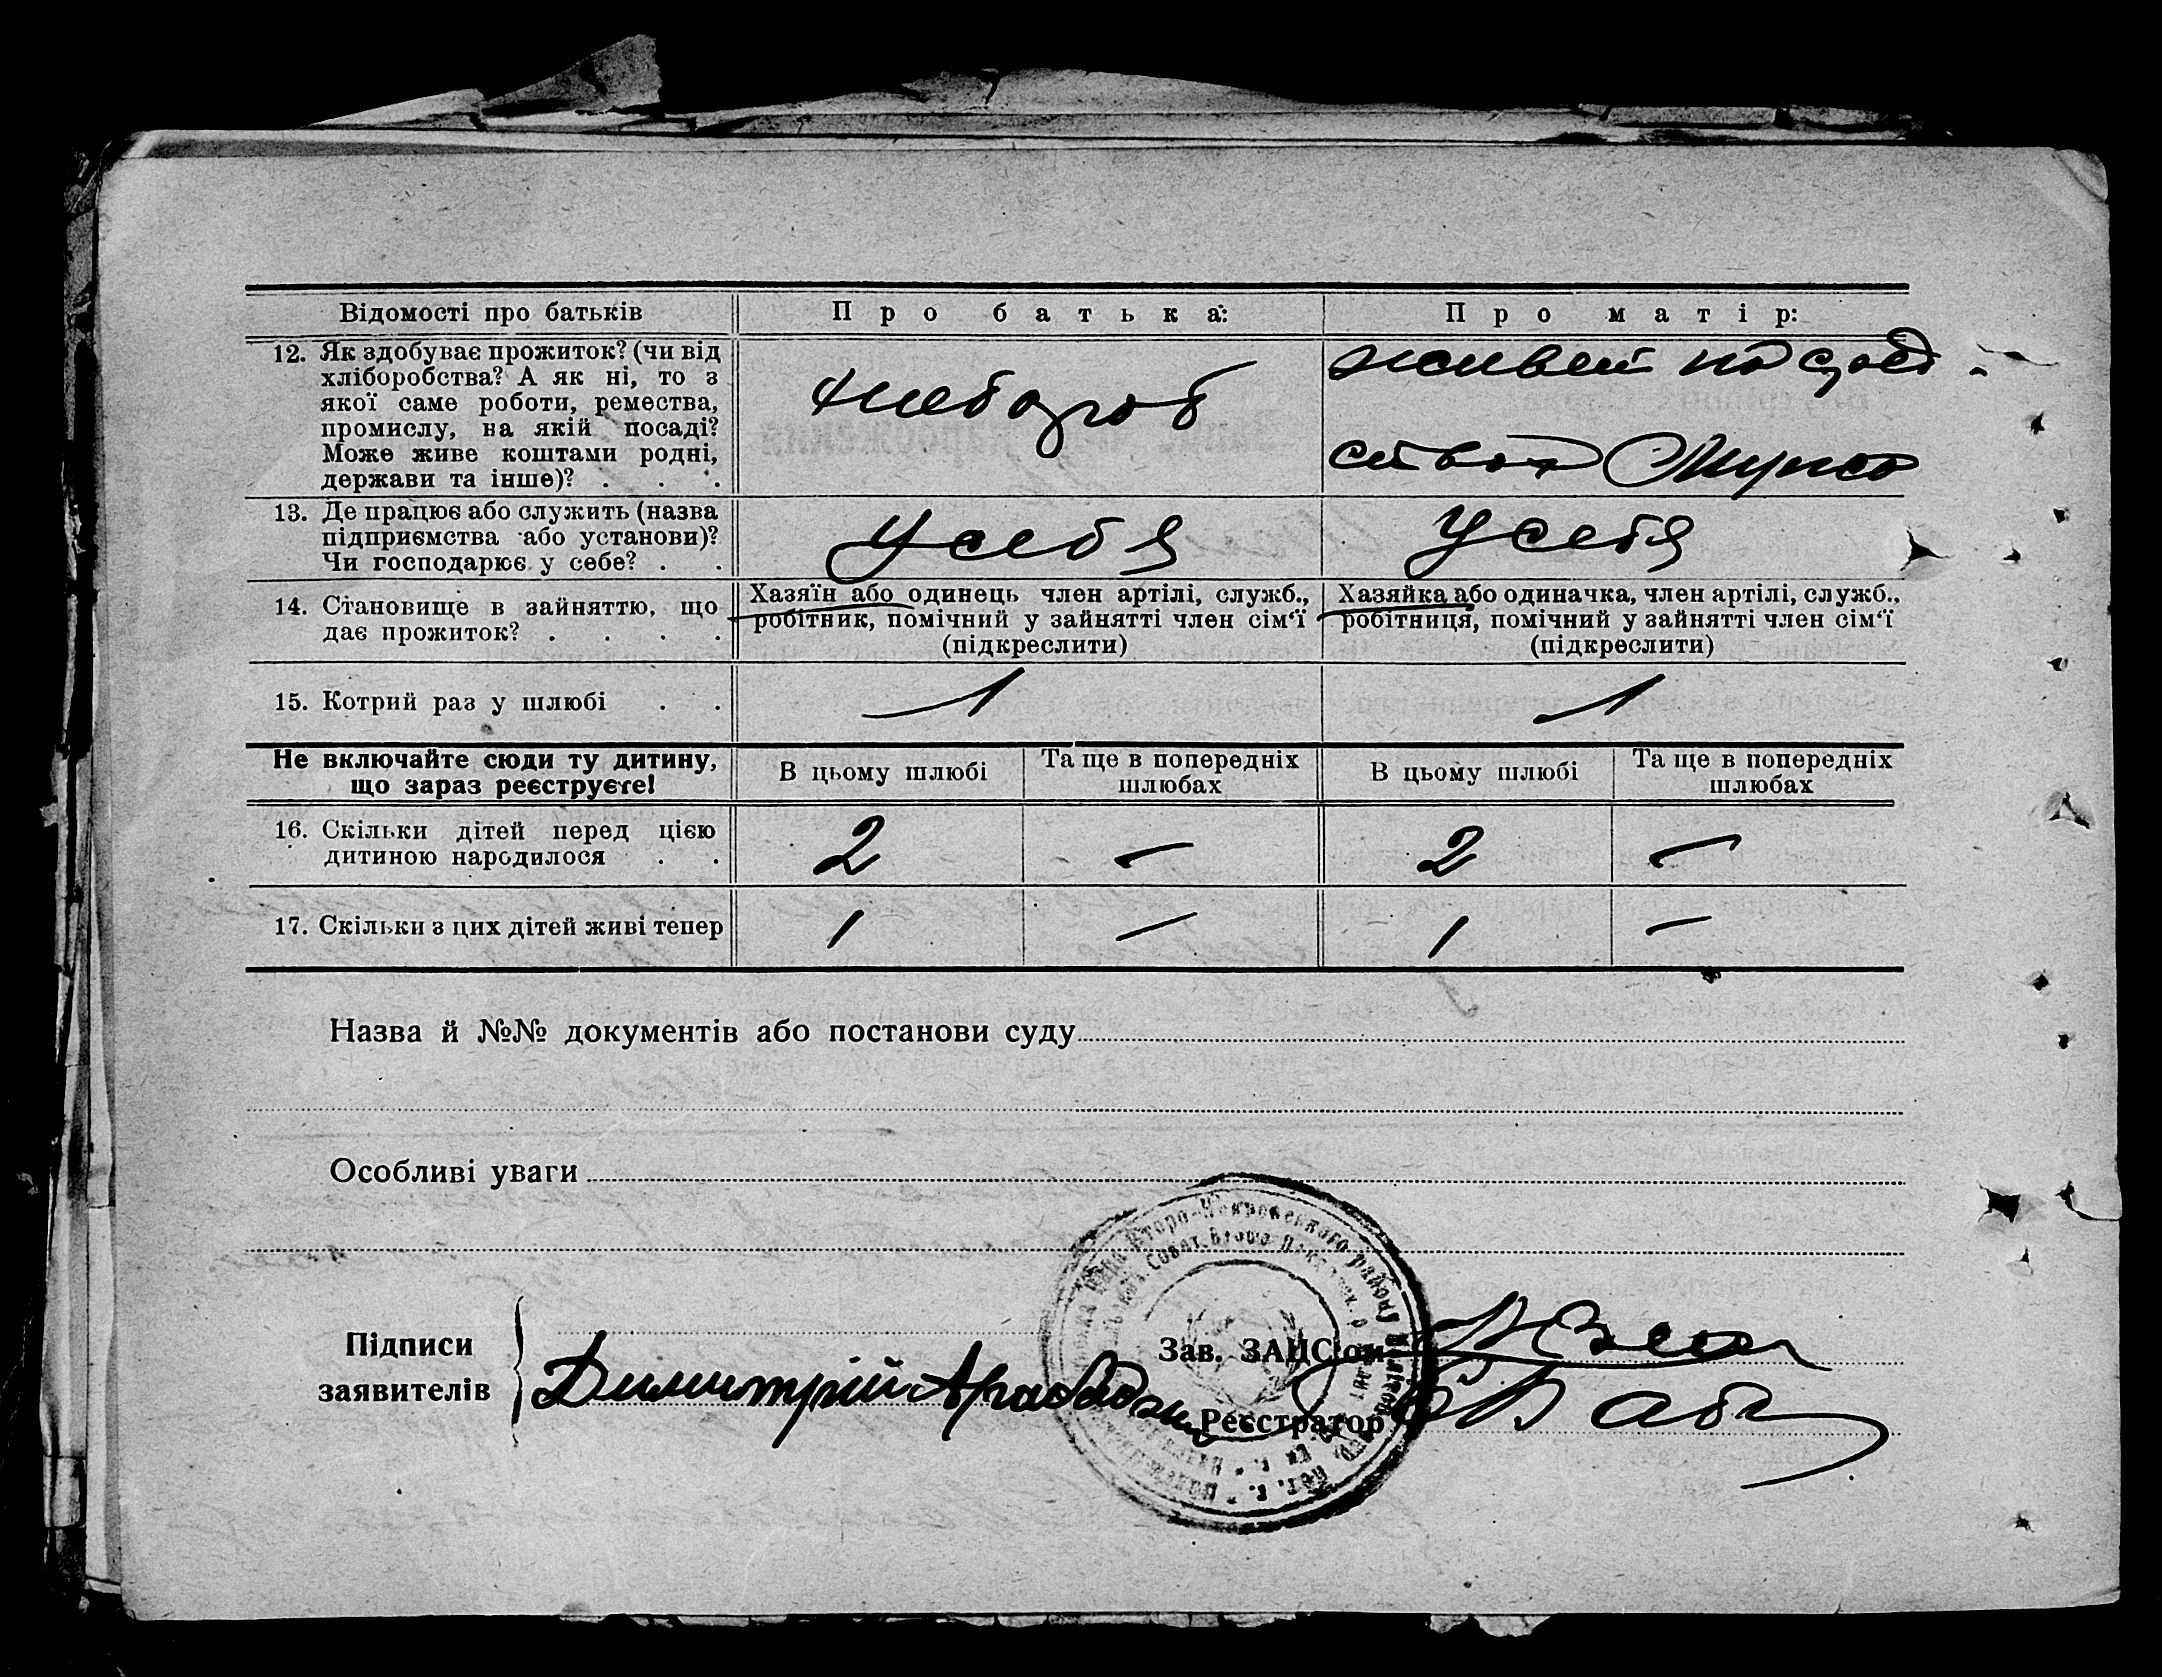 Відомості про батьків
Про батька:
Про матір:
12. Як здобуває прожиток? (чи від
хліборобства? А як ні, то з
якої саме роботи, ремества,
промислу, на якій посаді?
Може живе коштами родні,
держави та інше)? . . .
хлебороб
живет на сред-
ства мужа
13. Де працює або служить (назва
підприємства або установи)?
Чи господарює у себе? . .
У себя
У себя
14. Становище в зайняттю, що
дає прожиток? . . . .
Хазяїн або одинець член артілі, служб.,
робітник, помічний у зайнятті член сім'ї
(підкреслити)
Хазяйка або одиначка, член артілі, служб.,
робітниця, помічний у зайнятті член сім'ї
(підкреслити)
15. Котрий раз у шлюбі . .
1
1
Не включайте сюди ту дитину,
що зараз реєструєте!
В цьому шлюбі
Та ще в попередніх
шлюбах
В цьому шлюбі
Та ще в попередніх
шлюбах
16. Скільки дітей перед цією
дитиною народилося . .
2 — 2 —
17. Скільки з цих дітей живі тепер
1 — 1 —
Назва й №№ документів або постанови суду
Особливі уваги
Підписи
заявителів
Димитрій
Зав. ЗАЦС'ом
Реєстратор